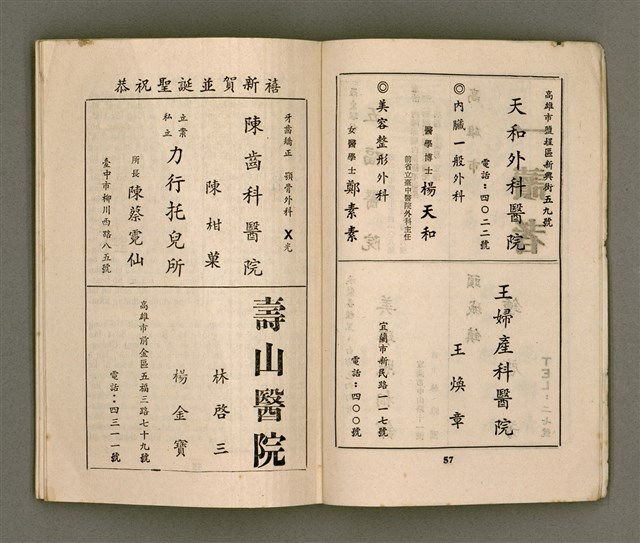 高雄市鹽埕區新興街五九號
天和外科醫院
電話：四〇二二號
◎內臟一般外科
醫學博士 楊天和
前省立臺中醫院外科主任
◎美容整形外科
女醫學士 鄭素素
王婦產科醫院
王煥章
宜蘭市新民路一一七號
電話：四〇〇號
57
恭祝聖誕並賀新禧
牙齒矯正 顎骨外科 X光
陳齒科醫院
陳柑菓
私立 立案 力行托兒所
所長 陳蔡霓仙
臺中市柳川西路八五號
壽山醫院
林啓三
楊金寶
高雄市前金區五福三路七十九號
電話：四三一一號